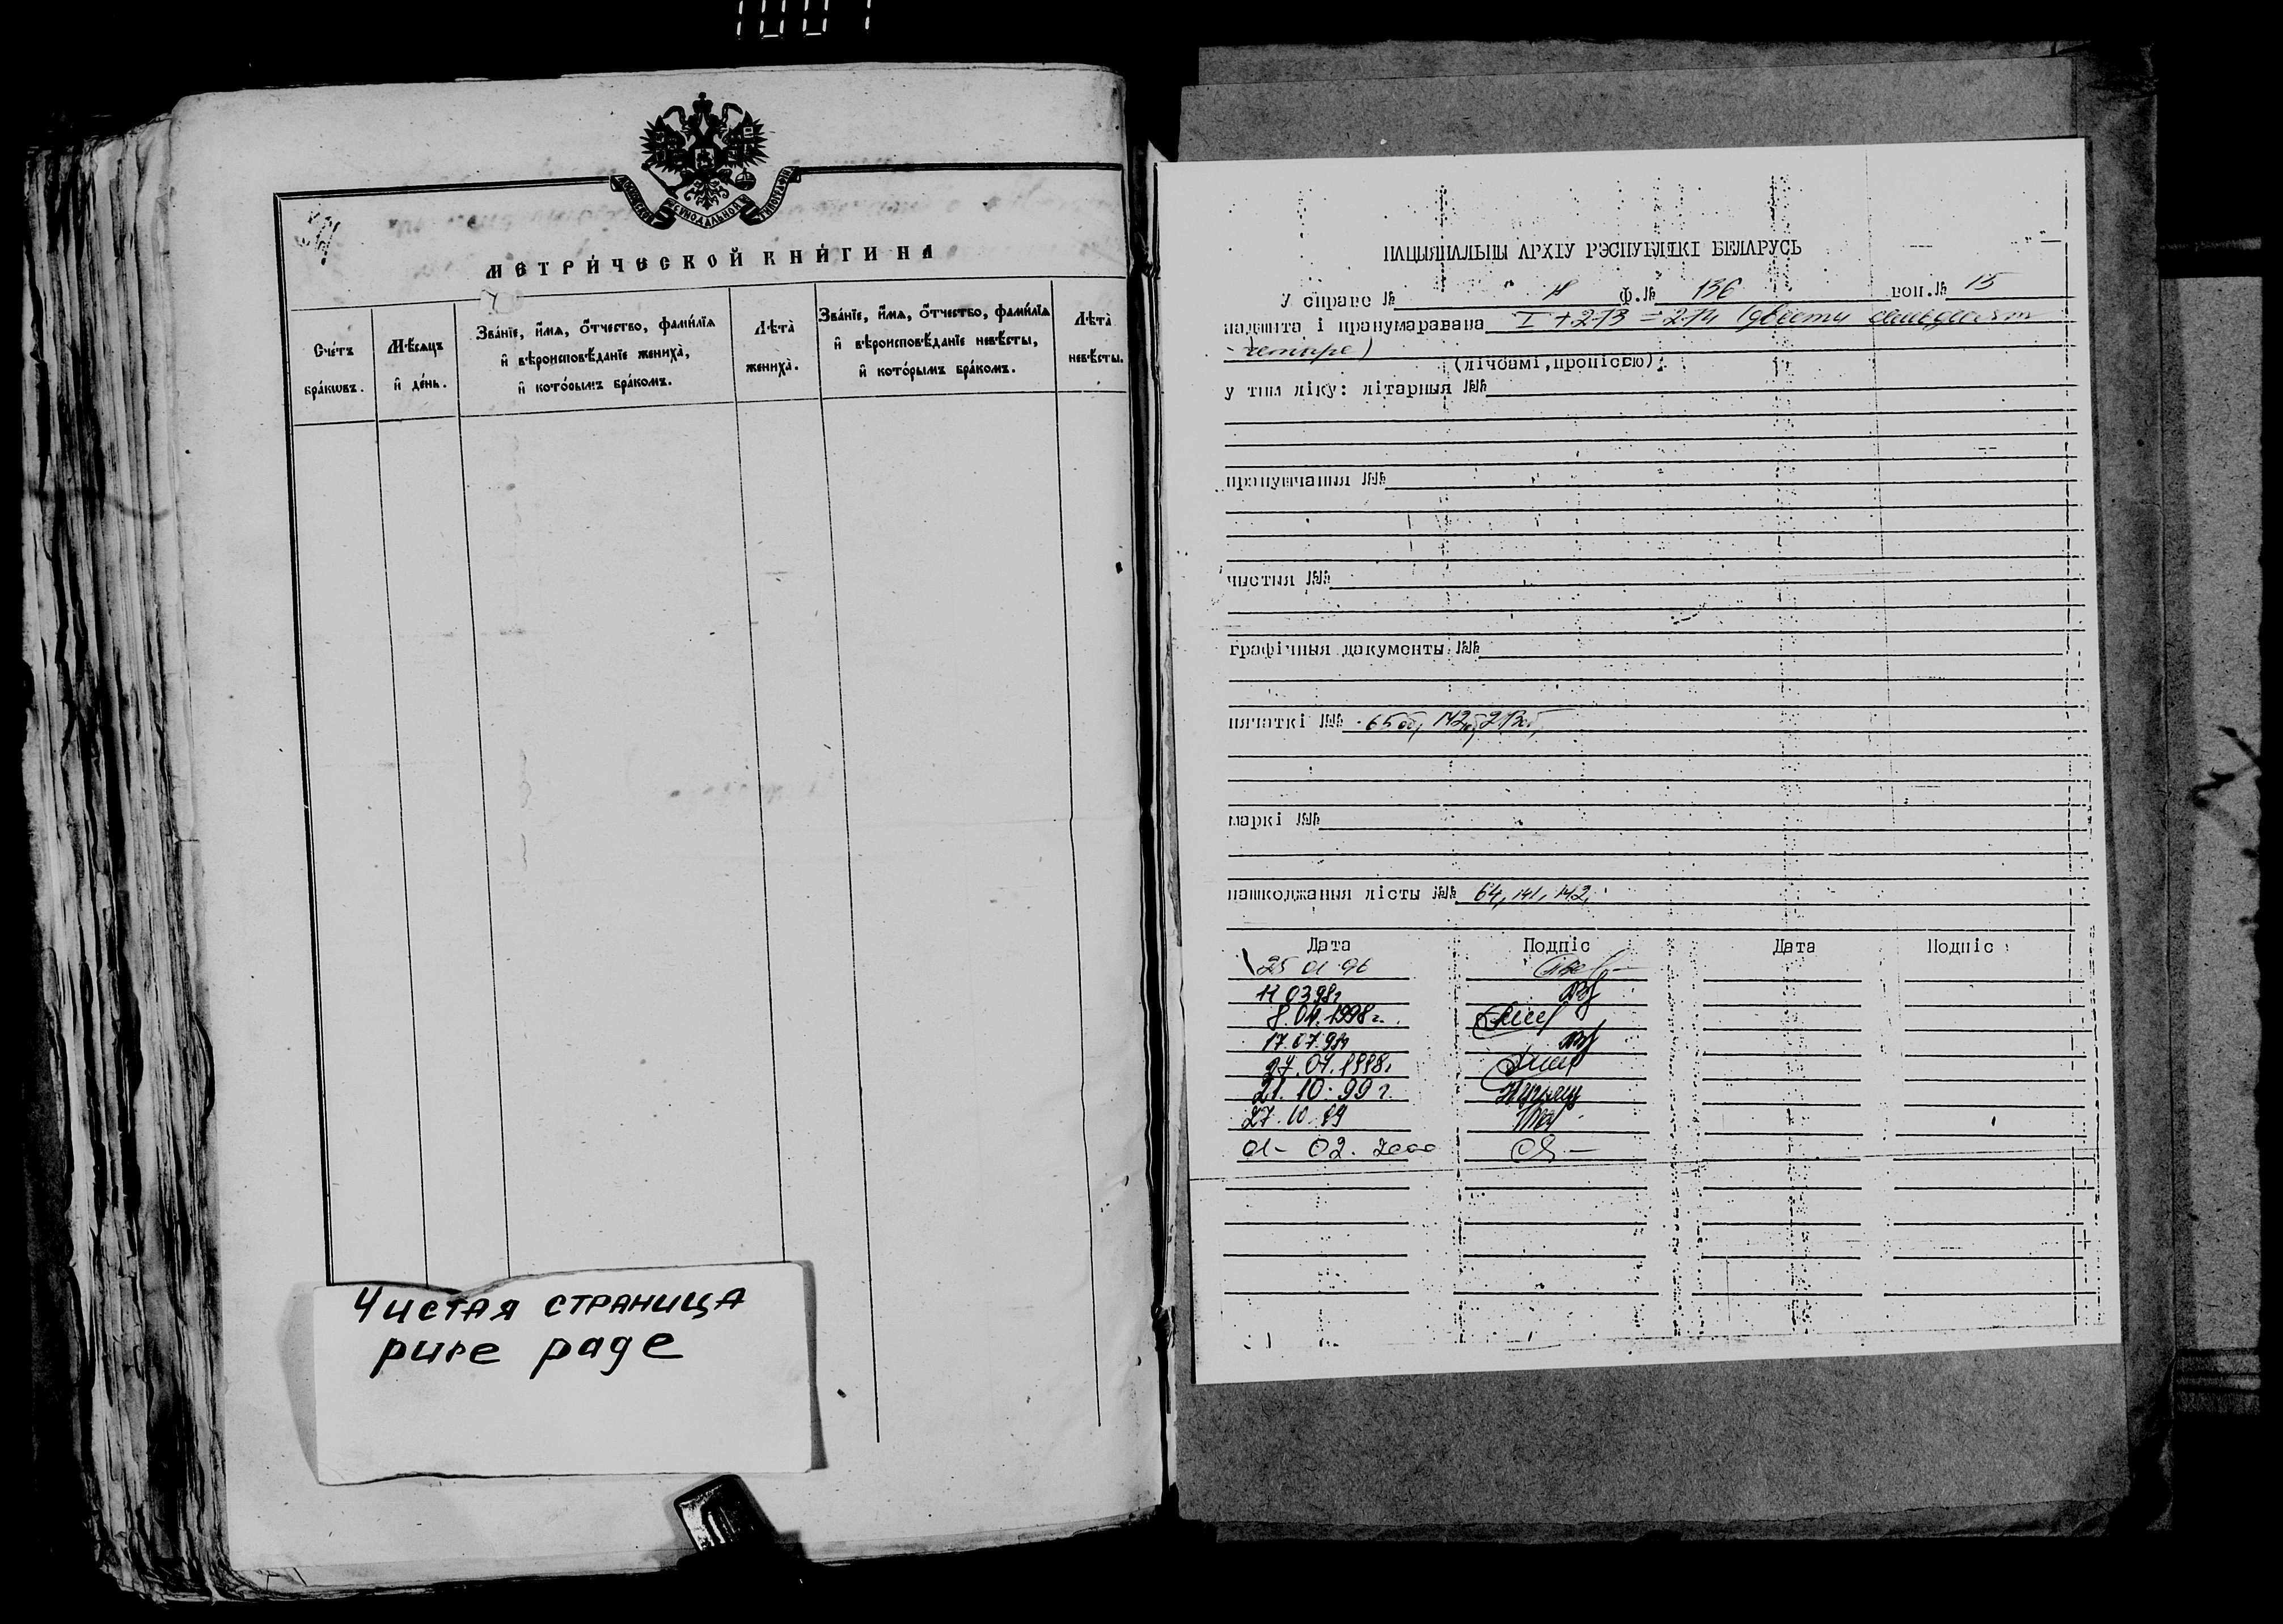 МОСКОВСКОЙ СѴНОДАЛЬНОЙ ТИПОГРАФІИ
МЕТРИ́ЧЕСКОЙ КНИ́ГИ НА
Сче́тъ бра́кѡвъ.
Мѣ́сѧцъ и҆ де́нь.
Зва́нїе, и҆́мѧ, ѻ҆́тчество, фами́лїѧ
и҆ вѣроисповѣ́данїе жениха̀,
и҆ кото́рымъ бра́комъ.
Лѣта̀ жениха̀.
Зва́нїе, и҆́мѧ, ѻ҆́тчество, фами́лїѧ
и҆ вѣроисповѣ́данїе невѣ́сты,
и҆ кото́рымъ бра́комъ.
Лѣта̀ невѣ́сты.
Чистая страница
pure page
НАЦЫЯНАЛЬНЫ АРХІЎ РЭСПУБЛІКІ БЕЛАРУСЬ
У справе № Ф.№ 136 воп.№ 15
падшита і пранумаравана I + 273 = 274 (двести семьдесят
четыре)
(лічбамі, пропісью);
у тым ліку: літарныя №№
прапушчаныя №№
чыстыя №№
графічныя дакументы №№
пячаткі №№ 65об, 142об, 273об,
маркі №№
пашкоджаныя лісты №№ 64, 141, 142,
Дата Подпіс Дата Подпіс
25 01 96
11 03 98г
8.04.1998г.
17.07.98г
27.07.1998г
21.10.99 г.
27.10.99
01- 02. 2000